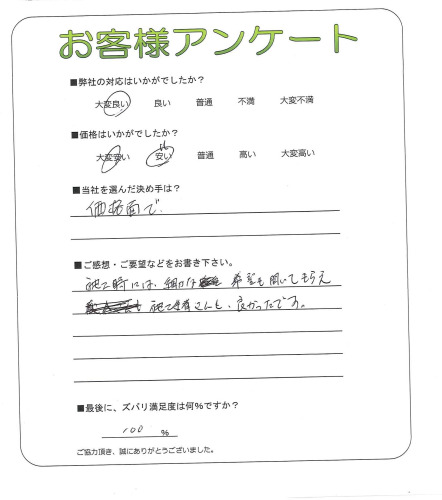 お客様アンケート
■弊社の対応はいかがでしたか？
大変良い 良い 普通 不満 大変不満
■価格はいかがでしたか？
大変安い 安い 普通 高い 大変高い
■当社を選んだ決め手は？
価格面で.
■ご感想・ご要望などをお書き下さい。
施工時には、細かな 希望も聞いてもらえ
施工業者さんも、良かったです。
■最後に、ズバリ満足度は何%ですか？
100 %
ご協力頂き、誠にありがとうございました。